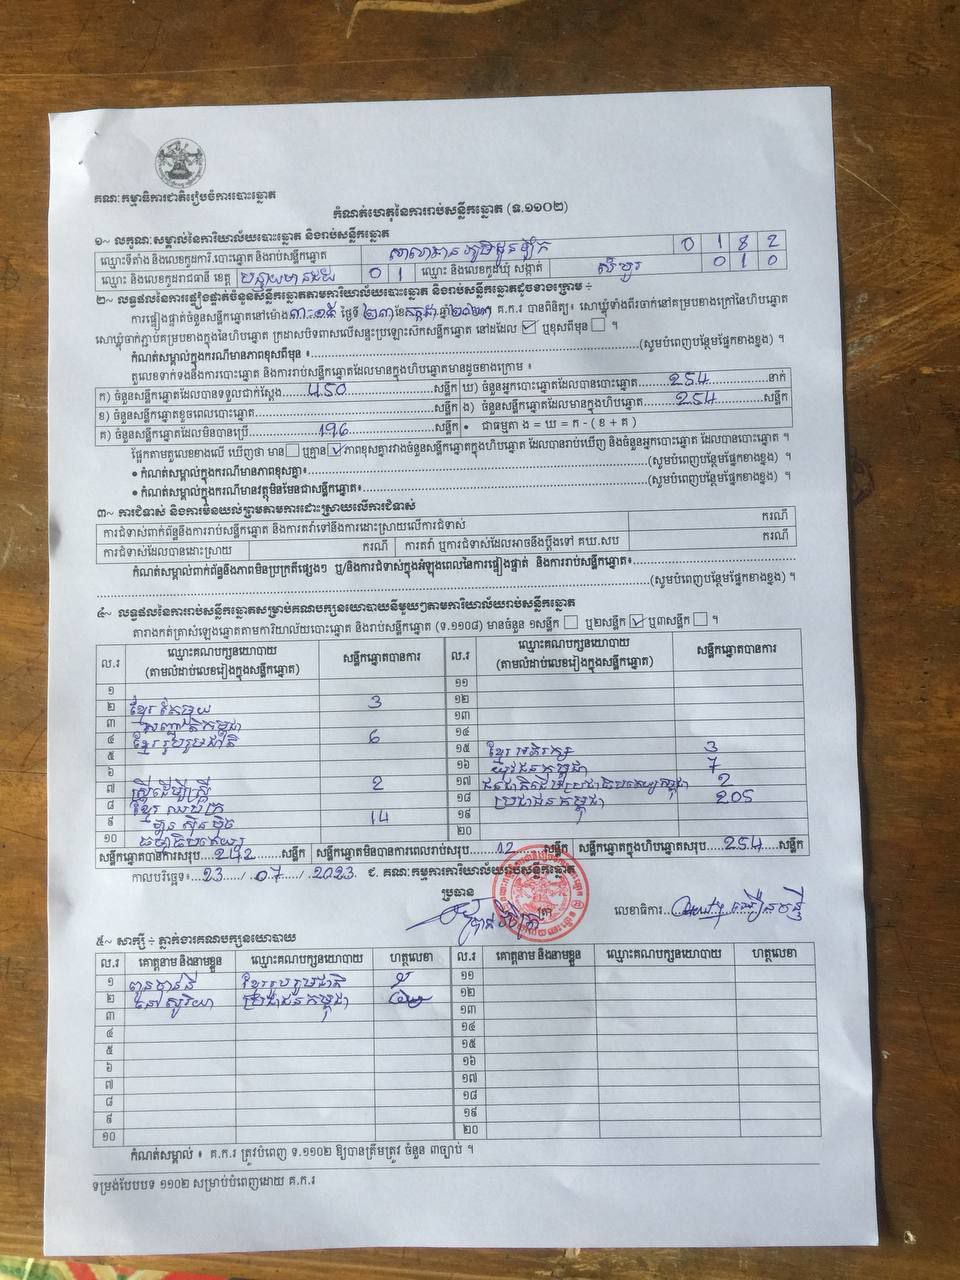 គណៈកម្មាធិការជាតិរៀបចំការបោះឆ្នោត
កំណត់ហេតុនៃការរាប់សន្លឹកឆ្នោត (ទ.១១០២)
១~ លក្ខណៈសម្គាល់នៃការិយាល័យបោះឆ្នោត និងរាប់សន្លឹកឆ្នោត
ឈ្មោះទីតាំង និងលេខកូដការិ.បោះឆ្នោត និងរាប់សន្លឹកឆ្នោត 0 1 8 2
ឈ្មោះ និងលេខកូដរាជធានី ខេត្ត បន្ទាយមានជ័យ 0 1 ឈ្មោះ និងលេខកូដឃុំ សង្កាត់ 0 1 0
២~ លទ្ធផលនៃការផ្ទៀងផ្ទាត់ចំនួនសន្លឹកឆ្នោតតាមការិយាល័យបោះឆ្នោត និងរាប់សន្លឹកឆ្នោតដូចខាងក្រោម ÷
ការផ្ទៀងផ្ទាត់ចំនួនសន្លឹកឆ្នោតនៅម៉ោង ៣:១៥ ថ្ងៃទី ២៣ ខែ កក្កដា ឆ្នាំ ២០២៣ គ.ក.រ បានពិនិត្យ៖ សោឃ្លុំទាំងពីរចាក់នៅគម្របខាងក្រៅនៃហិបឆ្នោត
សោឃ្លុំចាក់ភ្ជាប់គម្របខាងក្នុងនៃហិបឆ្នោត ក្រដាសបិទពាសលើសន្ទះប្រឡោះស៊កសន្លឹកឆ្នោត នៅដដែល ☑ ឬខុសពីមុន ☐ ។
កំណត់សម្គាល់ក្នុងករណីមានភាពខុសពីមុន ៖ (សូមបំពេញបន្ថែមផ្នែកខាងខ្នង) ។
តួលេខទាក់ទងនឹងការបោះឆ្នោត និងការរាប់សន្លឹកឆ្នោតដែលមានក្នុងហិបឆ្នោតមានដូចខាងក្រោម ៖
ក) ចំនួនសន្លឹកឆ្នោតដែលបានទទួលជាក់ស្តែង 450 សន្លឹក ឃ) ចំនួនអ្នកបោះឆ្នោតដែលបានបោះឆ្នោត 254 នាក់
ខ) ចំនួនសន្លឹកឆ្នោតខូចពេលបោះឆ្នោត សន្លឹក ង) ចំនួនសន្លឹកឆ្នោតដែលមានក្នុងហិបឆ្នោត 254 សន្លឹក
គ) ចំនួនសន្លឹកឆ្នោតដែលមិនបានប្រើ 196 សន្លឹក • ជាធម្មតា ង = ឃ = ក - ( ខ + គ )
ផ្អែកតាមតួលេខខាងលើ ឃើញថា មាន ☐ ឬគ្មាន ☑ ភាពខុសគ្នារវាងចំនួនសន្លឹកឆ្នោតក្នុងហិបឆ្នោត ដែលបានរាប់ឃើញ និងចំនួនអ្នកបោះឆ្នោត ដែលបានបោះឆ្នោត ។
• កំណត់សម្គាល់ក្នុងករណីមានភាពខុសគ្នា៖ (សូមបំពេញបន្ថែមផ្នែកខាងខ្នង) ។
• កំណត់សម្គាល់ក្នុងករណីមានវត្ថុមិនមែនជាសន្លឹកឆ្នោត៖ (សូមបំពេញបន្ថែមផ្នែកខាងខ្នង) ។
៣~ ការជំទាស់ និងការមិនយល់ព្រមតាមការដោះស្រាយលើការជំទាស់
ការជំទាស់ពាក់ព័ន្ធនឹងការរាប់សន្លឹកឆ្នោត និងការតវ៉ាទៅនឹងការដោះស្រាយលើការជំទាស់ ករណី
ការជំទាស់ដែលបានដោះស្រាយ ករណី ការតវ៉ា ឬការជំទាស់ដែលអាចនឹងប្តឹងទៅ គឃ.សប ករណី
កំណត់សម្គាល់ពាក់ព័ន្ធនឹងភាពមិនប្រក្រតីផ្សេងៗ ឬ/និងការជំទាស់ក្នុងអំឡុងពេលនៃការផ្ទៀងផ្ទាត់ និងការរាប់សន្លឹកឆ្នោត៖
(សូមបំពេញបន្ថែមផ្នែកខាងខ្នង) ។
៤~ លទ្ធផលនៃការរាប់សន្លឹកឆ្នោតសម្រាប់គណបក្សនយោបាយនីមួយៗតាមការិយាល័យរាប់សន្លឹកឆ្នោត
តារាងកត់ត្រាសំឡេងឆ្នោតតាមការិយាល័យបោះឆ្នោត និងរាប់សន្លឹកឆ្នោត (ទ.១១០៨) មានចំនួន ១សន្លឹក ☐ ឬ២សន្លឹក ☑ ឬ៣សន្លឹក ☐ ។
ល.រ ឈ្មោះគណបក្សនយោបាយ (តាមលំដាប់លេខរៀងក្នុងសន្លឹកឆ្នោត) សន្លឹកឆ្នោតបានការ ល.រ ឈ្មោះគណបក្សនយោបាយ (តាមលំដាប់លេខរៀងក្នុងសន្លឹកឆ្នោត) សន្លឹកឆ្នោតបានការ
១ ១១
២ ខ្មែរតែមួយ 3 ១២
៣ សញ្ជាតិកម្ពុជា ១៣
៤ ខ្មែររួបរួមជាតិ 6 ១៤
៥ ១៥ ខ្មែរអភិរក្ស 3
៦ ១៦ យុវជនកម្ពុជា 7
៧ ស្ត្រីដើម្បីស្ត្រី 2 ១៧ ជនជាតិដើមប្រជាធិបតេយ្យកម្ពុជា 2
៨ ខ្មែរឈប់ក្រ ១៨ ប្រជាជនកម្ពុជា 205
៩ ហ្វ៊ុនស៊ិនប៉ិច 14 ១៩
១០ ធម្មាធិបតេយ្យ ២០
សន្លឹកឆ្នោតបានការសរុប 242 សន្លឹក សន្លឹកឆ្នោតមិនបានការពេលរាប់សរុប 12 សន្លឹក សន្លឹកឆ្នោតក្នុងហិបឆ្នោតសរុប 254 សន្លឹក
កាលបរិច្ឆេទ៖ 23 / 07 / 2023 ជ. គណៈកម្មការការិយាល័យរាប់សន្លឹកឆ្នោត
ប្រធាន
លេខាធិការ
៥~ សាក្សី ÷ ភ្នាក់ងារគណបក្សនយោបាយ
ល.រ គោត្តនាម និងនាមខ្លួន ឈ្មោះគណបក្សនយោបាយ ហត្ថលេខា ល.រ គោត្តនាម និងនាមខ្លួន ឈ្មោះគណបក្សនយោបាយ ហត្ថលេខា
១ ខ្មែររួបរួមជាតិ ១១
២ នៅ សូរិយា ប្រជាជនកម្ពុជា ១២
៣ ១៣
៤ ១៤
៥ ១៥
៦ ១៦
៧ ១៧
៨ ១៨
៩ ១៩
១០ ២០
កំណត់សម្គាល់ ៖ គ.ក.រ ត្រូវបំពេញ ទ.១១០២ ឱ្យបានត្រឹមត្រូវ ចំនួន ៣ច្បាប់ ។
ទម្រង់បែបបទ ១១០២ សម្រាប់បំពេញដោយ គ.ក.រ